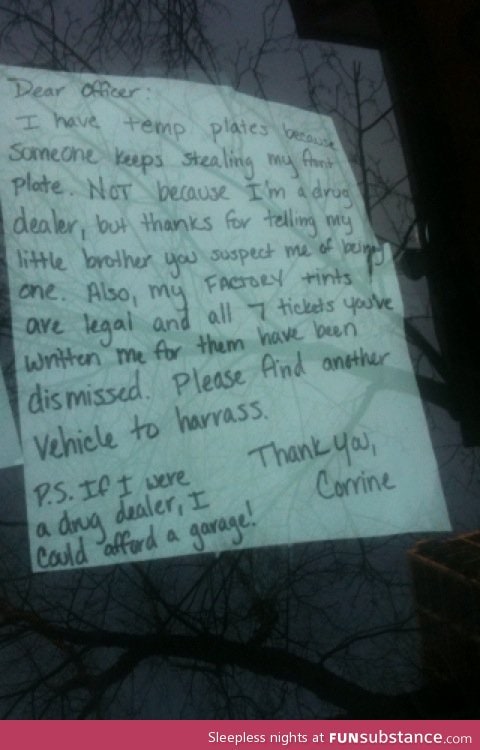 Dear Officer:
I have temp plates because
someone keeps stealing my front
plate. NOT because I'm a drug
dealer, but thanks for telling my
little brother you suspect me of being
one. Also, my FACTORY tints
are legal and all 7 tickets you've
written me for them have been
dismissed. Please find another
vehicle to harrass.
Thank you,
Corrine
P.S. If I were
a drug dealer, I
could afford a garage!
Sleepless nights at FUNsubstance.com